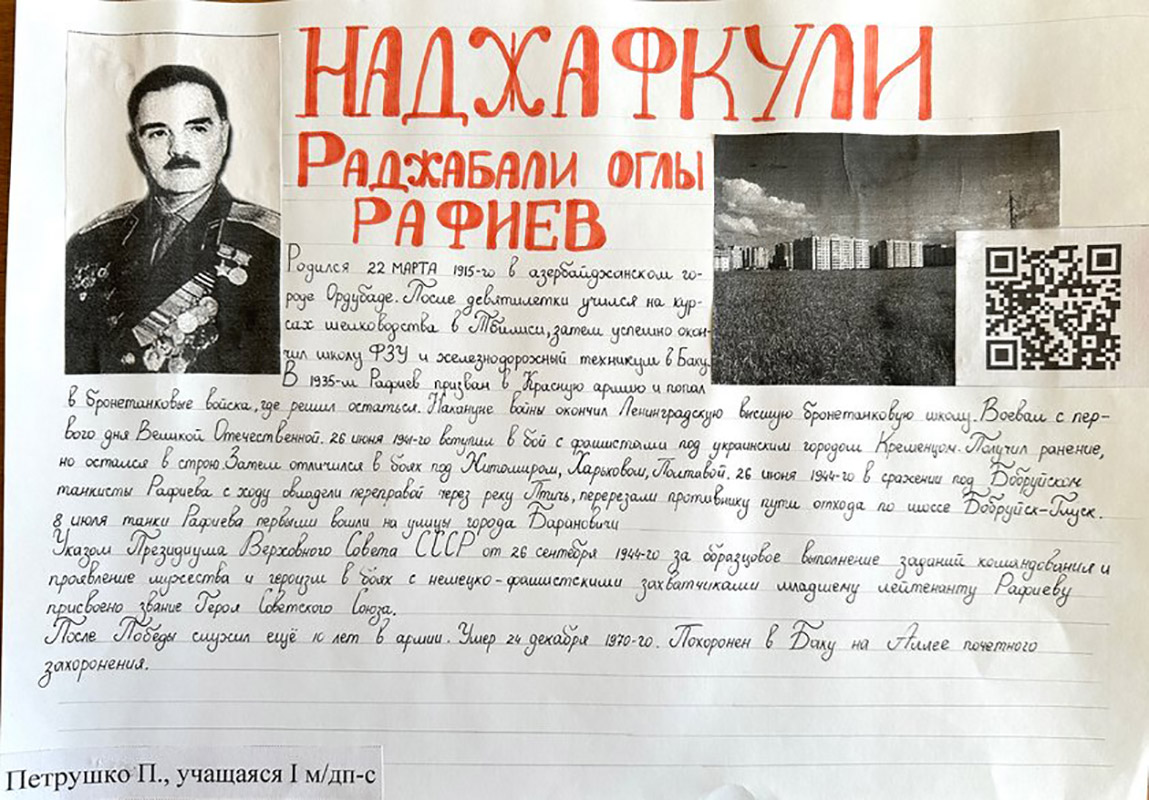 НАДЖАФКУЛИ
РАДЖАБАЛИ ОГЛЫ
РАФИЕВ
Родился 22 МАРТА 1915-го в азербайджанском го-
роде Ордубаде. После девятилетки учился на кур-
сах шелководства в Тбилиси, затем успешно окон-
чил школу ФЗУ и железнодорожный техникум в Баку.
В 1935-м Рафиев призван в Красную армию и попал
в бронетанковые войска, где решил остаться. Накануне войны окончил Ленинградскую высшую бронетанковую школу. Воевал с пер-
вого дня Великой Отечественной. 26 июня 1941-го вступил в бой с фашистами под украинским городом Кременцом. Получил ранение,
но остался в строю. Затем отличился в боях под Житомиром, Харьковом, Полтавой. 26 июня 1944-го в сражении под Бобруйском
танкисты Рафиева с ходу овладели переправой через реку Птичь, перерезали противнику пути отхода по шоссе Бобруйск-Глуск.
8 июля танки Рафиева первыми вошли на улицы города Барановичи
Указом Президиума Верховного Совета СССР от 26 сентября 1944-го за образцовое выполнение заданий командования и
проявление мужества и героизм в боях с немецко-фашистскими захватчиками младшему лейтенанту Рафиеву
присвоено звание Героя Советского Союза.
После Победы служил ещё 10 лет в армии. Умер 24 декабря 1970-го. Похоронен в Баку на Аллее почетного
захоронения.
Петрушко П., учащаяся I м/дп-с